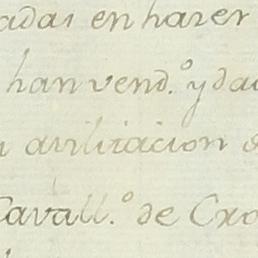 adas en hazer
han vend.º y da
avilitacion
Cavall.º de Cro